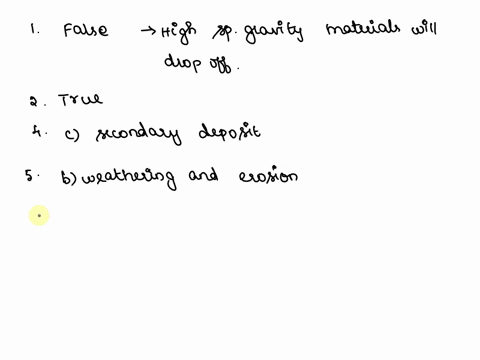 1. False → High sp. gravity materials will
drop off.
2. True
4. c) secondary deposit
5. b) weathering and erosion